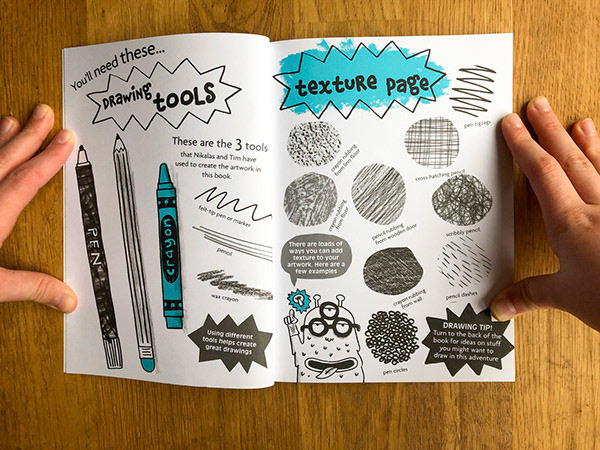 You'll need these...
DRawing
TOOLS
These are the 3 tools
that Nikalas and Tim have
used to create the artwork in
this book.
felt-tip pen or marker
pencil
wax crayon
PEN
crayon
Using different
tools helps create
great drawings
texture page
pen zigzags
crayon rubbing
from lino floor
cross-hatching pencil
crayon rubbing
from floor
pencil rubbing
from wooden door
scribbly pencil
There are loads of
ways you can add
texture to your
artwork. Here are a
few examples
crayon rubbing
from wall
pencil dashes
pen circles
DRAWING TIP!
Turn to the back of the
book for ideas on stuff
you might want to
draw in this adventure